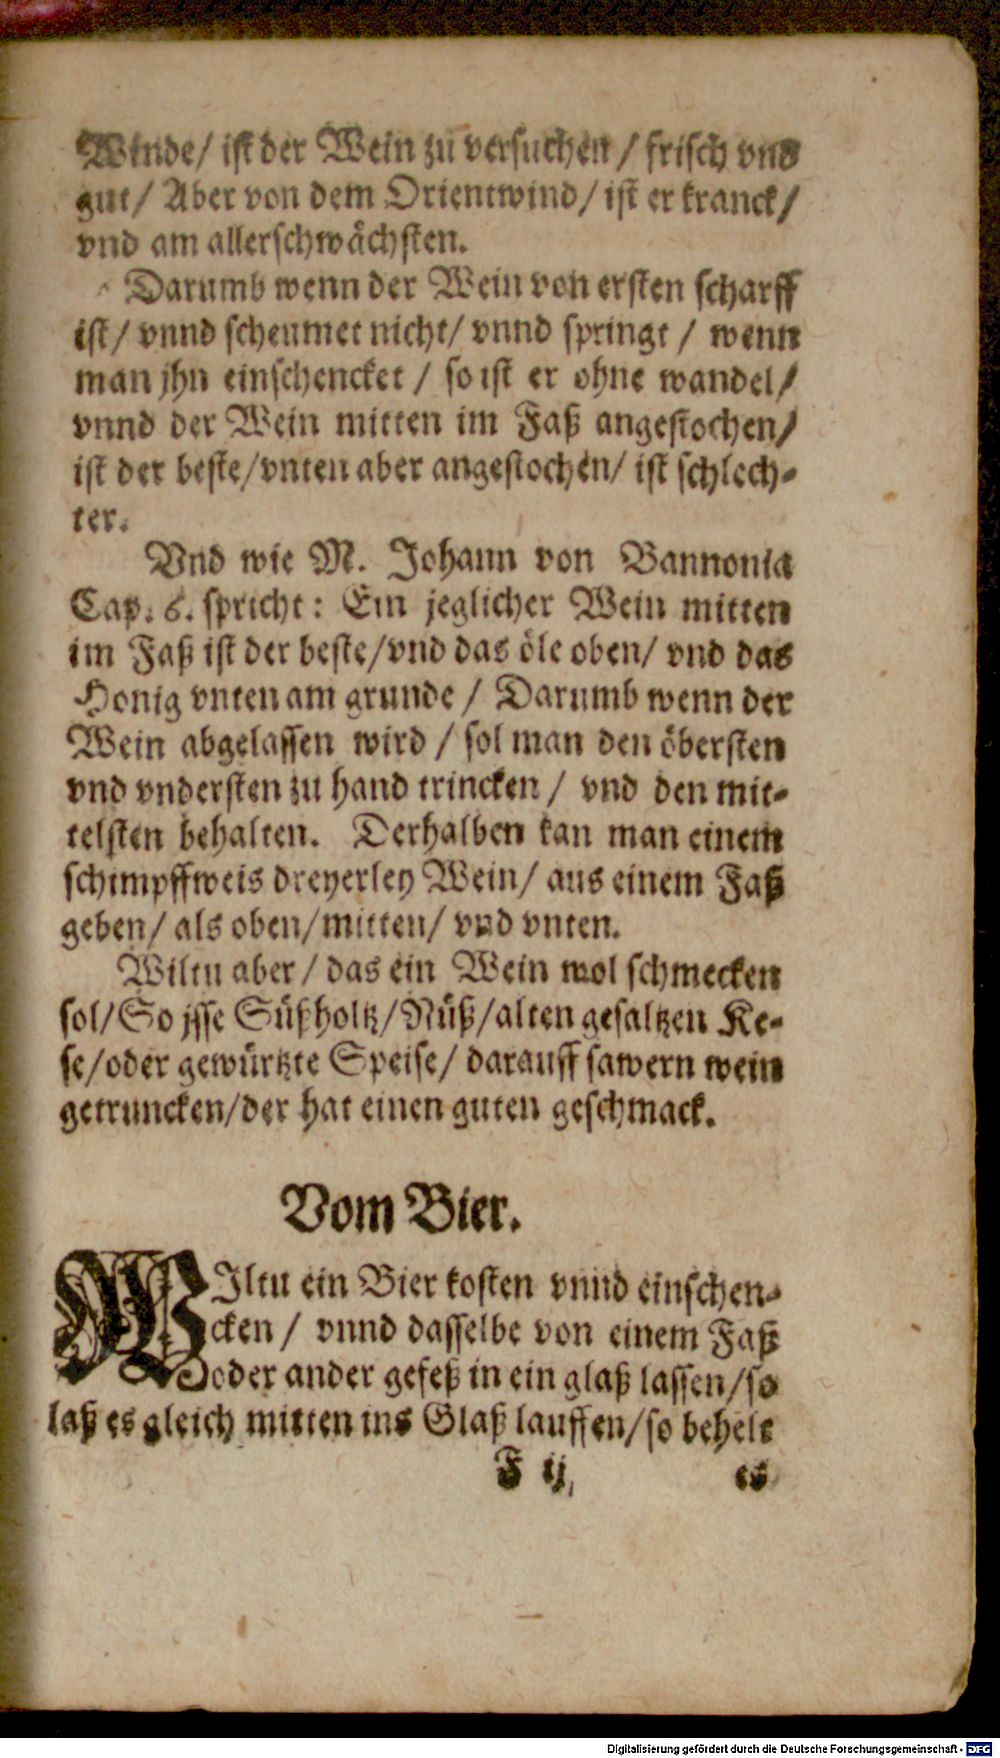 Winde/ ist der Wein zu versuchen / frisch vnd
gut/ Aber von dem Orientwind/ ist er kranck/
vnd am allerschwächsten.
Darumb wenn der Wein von ersten scharff
ist/ vnnd scheumet nicht/ vnnd springt / wenn
man jhn einschencket / so ist er ohne wandel/
vnnd der Wein mitten im Faß angestochen/
ist der beste/vnten aber angestochen/ ist schlech-
ter.
Vnd wie M. Johann von Bannonia
Cap. 6. spricht: Ein jeglicher Wein mitten
im Faß ist der beste/vnd das öle oben/ vnd das
Honig vnten am grunde / Darumb wenn der
Wein abgelassen wird / sol man den öbersten
vnd vndersten zu hand trincken / vnd den mit-
telsten behalten. Derhalben kan man einem
schimpffweis dreyerley Wein/ aus einem Faß
geben/ als oben/mitten/ vnd vnten.
Wiltu aber / das ein Wein wol schmecken
sol/So jsse Süßholtz/Nüß/alten gesaltzen Ke-
se/oder gewürtzte Speise/ darauff sawern wein
getruncken/der hat einen guten geschmack.
Vom Bier.
WIltu ein Bier kosten vnnd einschen-
cken / vnnd dasselbe von einem Faß
oder ander gefeß in ein glaß lassen/so
laß es gleich mitten ins Glaß lauffen/so behelt
F ij, es
Digitalisierung gefördert durch die Deutsche Forschungsgemeinschaft - DFG